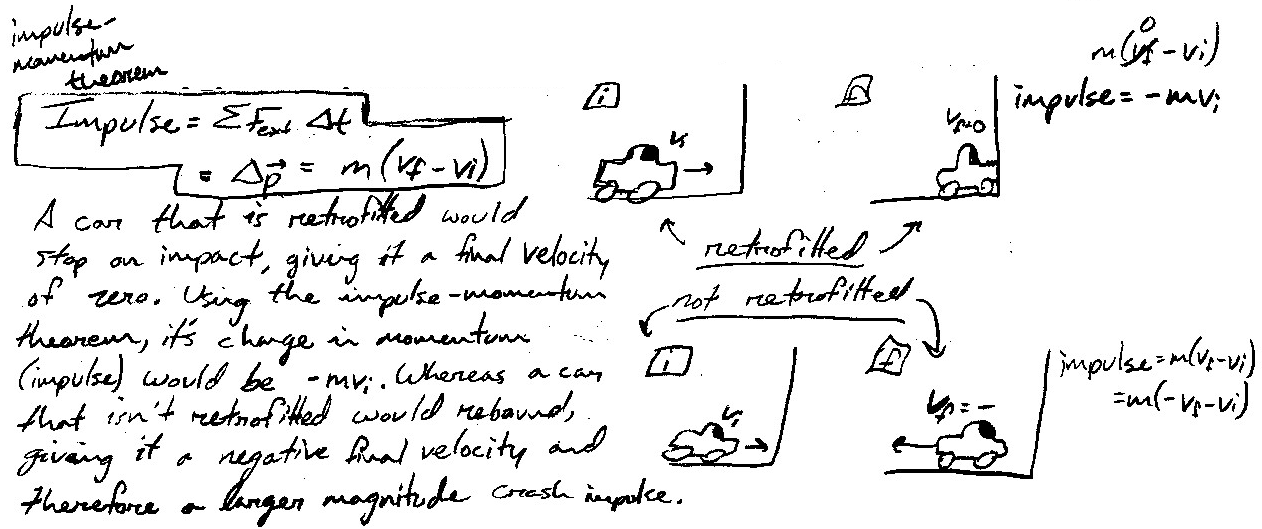 impulse-
momentum
theorem
Impulse = ΣFext Δt
= Δp⃗ = m(vf - vi)
A car that is retrofitted would
stop on impact, giving it a final velocity
of zero. Using the impulse-momentum
theorem, it's change in momentum
(impulse) would be -mvi. Whereas a car
that isn't retrofitted would rebound,
giving it a negative final velocity and
therefore a larger magnitude crash impulse.
i
vi
f
vf=0
0
m(vf - vi)
impulse = -mvi
retrofitted
not retrofitted
i
vi
f
vf = -
impulse = m(vf-vi)
= m(-vf-vi)